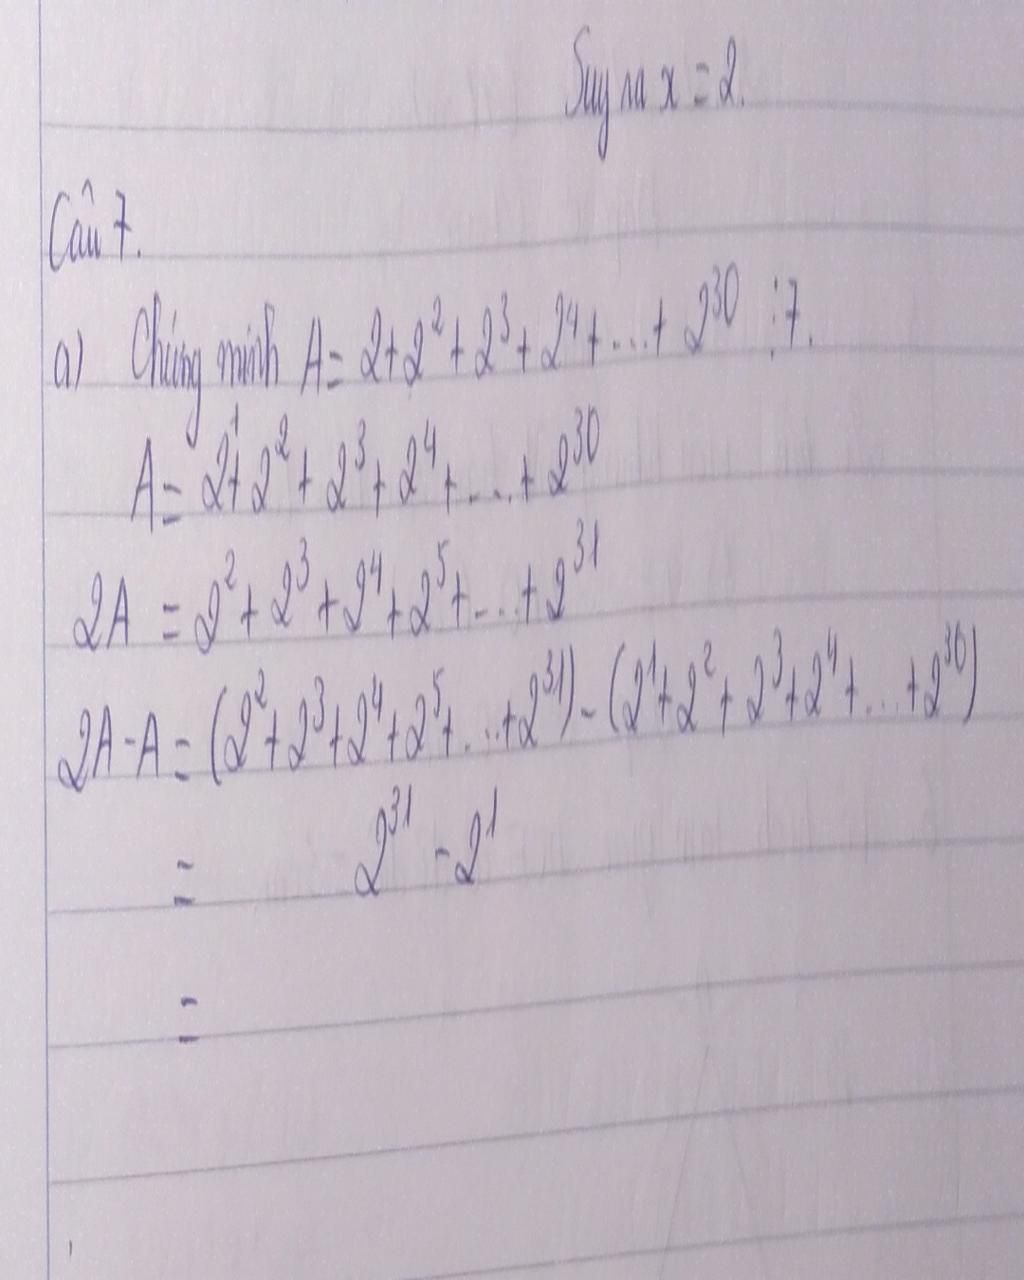 Suy ra x = 2.
Câu 7.
a) Chứng minh A = 2 + 2² + 2³ + 2⁴ + ... + 2³⁰ ⋮ 7.
A = 2¹ + 2² + 2³ + 2⁴ + ... + 2³⁰
2A = 2² + 2³ + 2⁴ + 2⁵ + ... + 2³¹
2A - A = (2² + 2³ + 2⁴ + 2⁵ + ... + 2³¹) - (2¹ + 2² + 2³ + 2⁴ + ... + 2³⁰)
= 2³¹ - 2¹
=